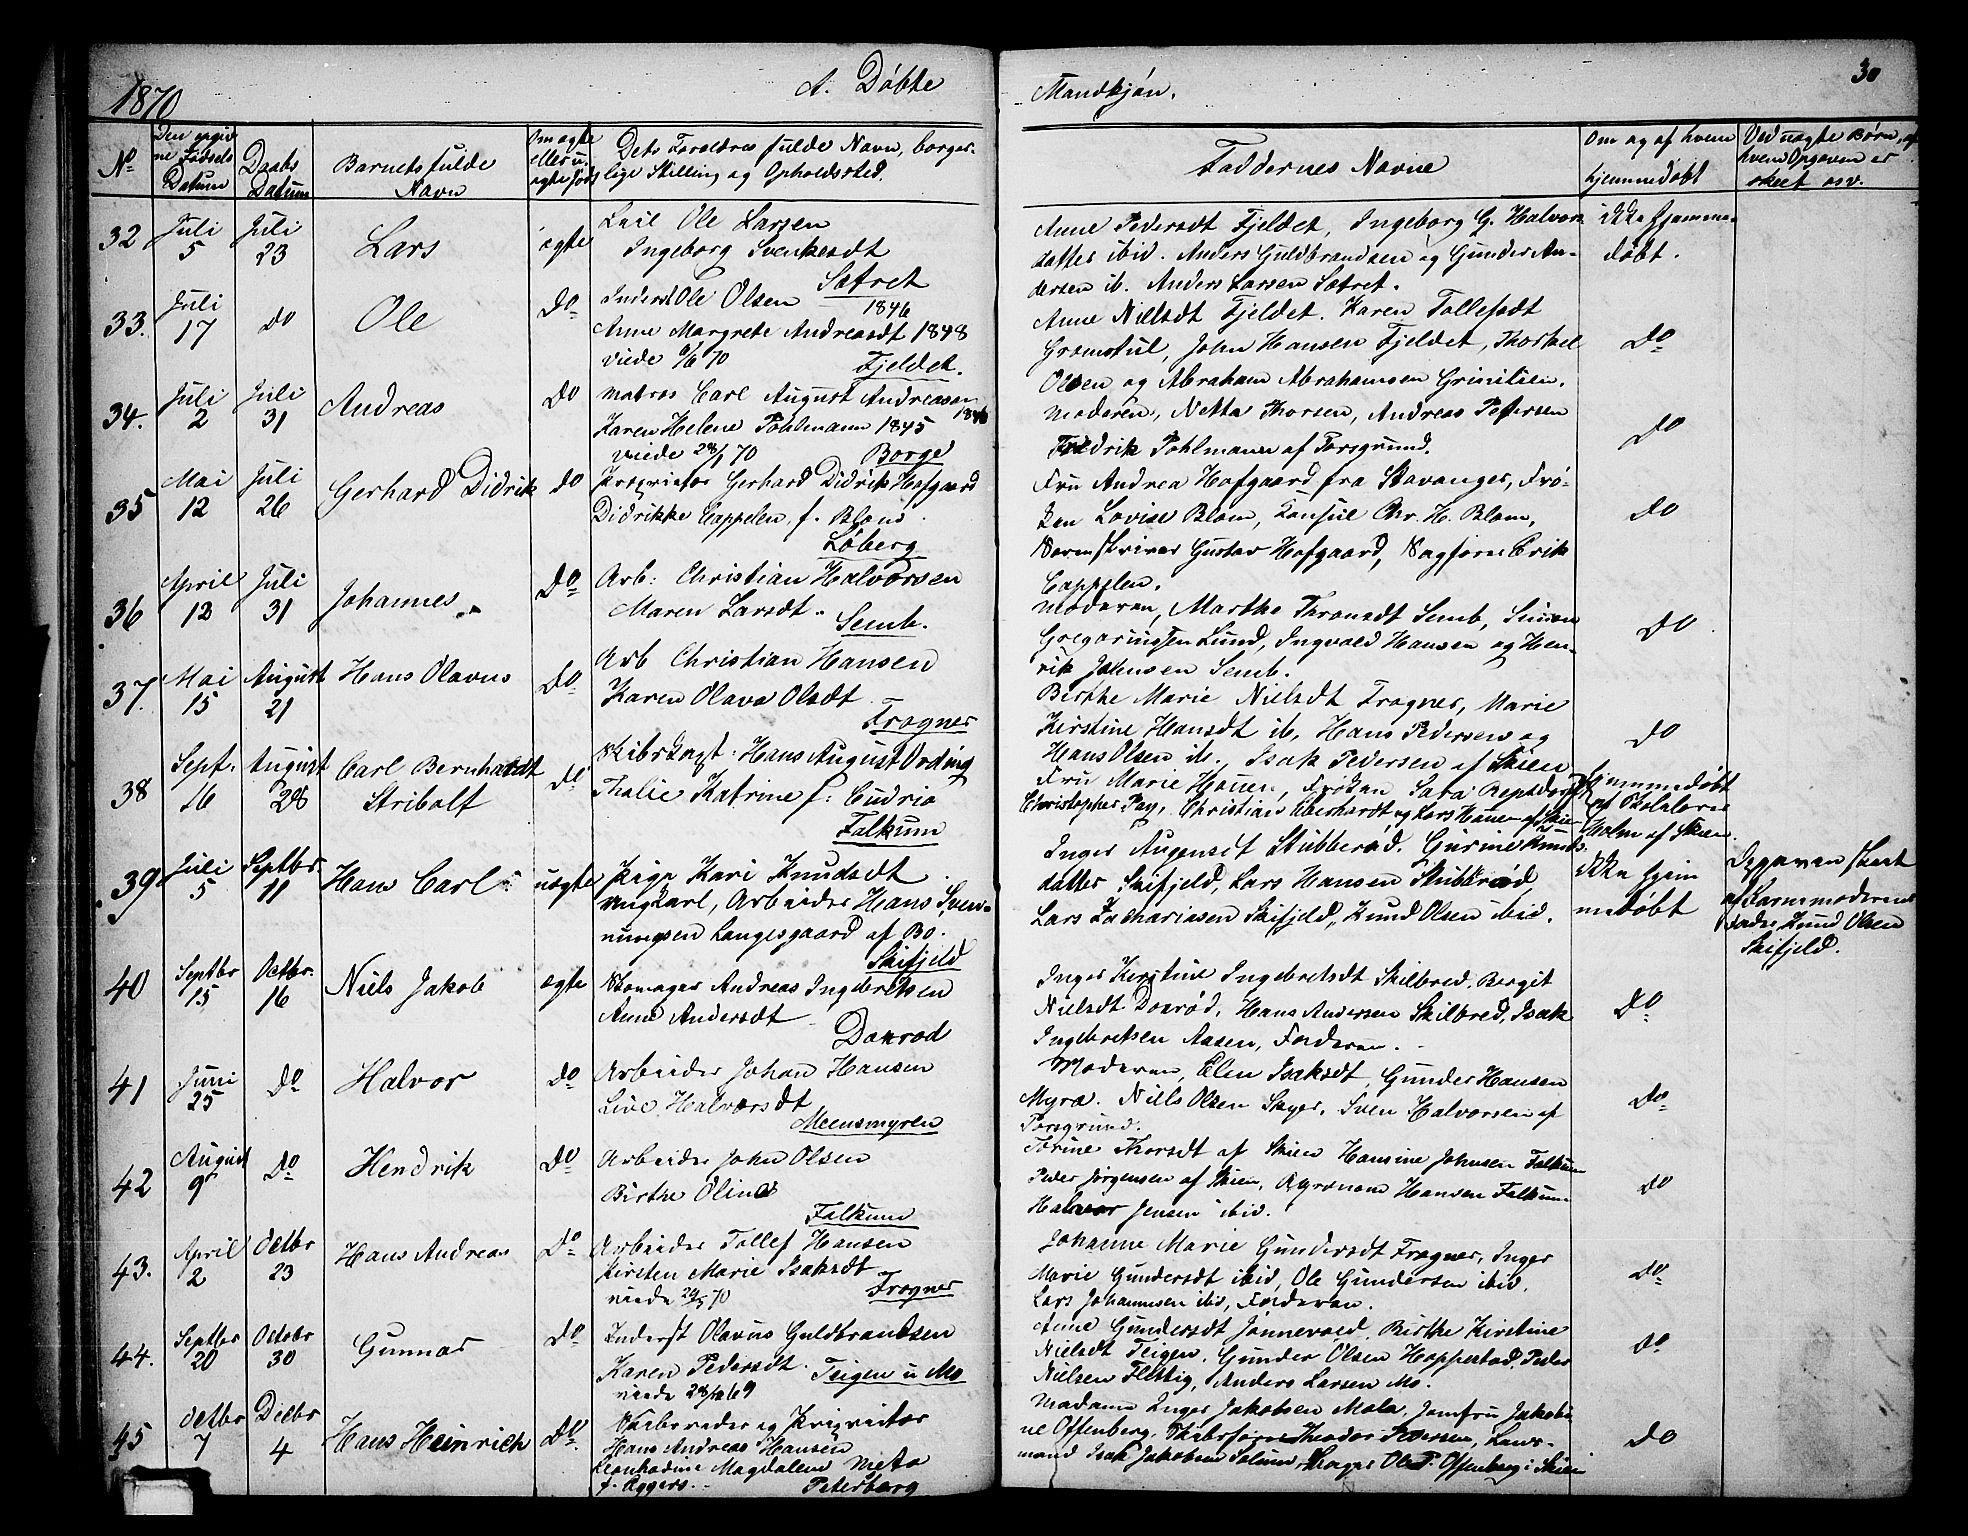 1870
A. Døbte
Mandkjøn.
30
No
Den opgiv
ne Fødsels
Datum
Daabs
Datum
Barnets fulde
Navn
Om ægte
eller u-
ægte føds
Dets Forældres fulde Navn, borger-
lige Stilling og Opholdssted.
Faddernes Navne
Om og af hvem
hjemmedøbt
Ved uægte Børn, af
hvem Opgaven er
skeet osv.
32
Juli
5
Juli
23
Lars
ægte
Leil Ole Larsen
Ingeborg Svenkesdt
Sætret
Anne Pedersdt Fjeldet, Ingeborg G. Halvors
datter ibid. Anders Guldbrandsen og Gunder An-
dersen ib. Anders Larsen Sætret.
ikke hjemme
døbt.
33.
Juli
17
Do
Ole
Do
Inderst Ole Olsen
1846
Anne Margrete Andreasdt 1848
viede 70
Fjeldet.
Anne Nielsdt Fjeldet. Karen Tollefsdt
Gromstul, John Hansen Fjeldet, Thorkel
Olsen og Abraham Abrahamsen Grinilien.
Do
34.
Juli
2
Juli
31
Andreas
Do
Matros Carl August Andreasen
1846
Karen Helene Pohlmann 1845
viede 28/1 70
Borge
Moderen, Netta Thorsen, Andreas Petersen
Fredrik Pohlmann af Porsgrund.
Do
35
Mai
12
Juli
26
Gerhard Didrik
Do
Proprietær Gerhard Didrik Hofgaard
Didrikke Cappelen f. Blom
Løberg
Fru Andrea Hofgaard fra Stavanger, Frø-
ken Lovise Blom, Konsul Chr. H. Blom,
Sorenskriver Gustav Hofgaard, Sagfører Erik
Cappelen.
Do
36
April
12
Juli
31
Johannes
Do
Arb: Christian Halvorsen
Maren Larsdt.
Semb.
Moderen, Marthe Thronsdt Semb, Simon
Gregoriussen Lund, Ingvald Hansen og Hen-
rik Johnsen Semb.
Do
37.
Mai
15
August
21
Hans Olavus
Do
Arb Christian Hansen
Karen Olava Olsdt
Frogner
Birthe Marie Nielsdt Frogner, Marie
Kirstine Hansdt ib, Hans Pedersen og
Hans Olsen ib. Isak Pedersen af Skien
Do
38
Sept.
16
August
28
Carl Bernhardt
Stribolt
Do
Skibskapt: Hans August Ording
Thalie Katrine f: Cudrio
Falkum
Fru Marie Houen, Frøken Sara
Christopher Pay, Christian Eberhardt og Lars Houen af Skien
hjemmedøbt
af Skolelærer
Holm af Skien.
39
Juli
5
Septbr
11
Hans Carl
uægte
Pige Kari Knudsdt
ungkarl, Arbeider Hans Sven-
nungsen Langesgaard af Bø.
Skifjeld
Inger Augensdt Stubberød. Gurine Knuds-
datter Skifjeld, Lars Hansen Stubberød,
Lars Zachariasen Skifjeld, Knud Olsen ibid.
Ikke hjem
medøbt
Opgaven skeet
af Barnemoderens
Fader Knud Olsen
Skifjeld.
40
Septbr
15
Octbr.
16
Niels Jakob
ægte
Skomager Andreas Ingebretsen
Anne Andersdt
Danrød
Inger Kirstine Ingebretsdt Skilbred. Bergit
Nielsdt Doxrød, Hans Andersen Skilbred, Isak
Ingebretsen Aasen, Faderen.
Do
41
Juni
25
Do
Halvor
Do
Arbeider Johan Hansen
Live Halvorsdt
Meensmyren
Moderen, Elen Isaksdt, Gunder Hansen
Myra. Niels Olsen Skyer, Sven Halvorsen af
Porsgrund.
Do
42
August
9
Do
Hendrik
Do
Arbeider John Olsen
Birthe Olina
Falkum
Torine Thorsdt af Skien Hansine Johnsen Falkum
Peder Jørgensen af Skien, Agronom Hansen Falkum
Halvor Jensen ibid.
Do
43.
April
2
Octbr
23
Hans Andreas
Do
Arbeider Tollef Hansen
Kirsten Marie Isaksdt
viede 70
Frogner
Johanne Marie Gundersdt Frogner, Inger
Marie Gundersdt ibid, Ole Gundersen ibid.
Lars Johannesen ibid, Faderen.
Do
44.
Septbr
20
Octobr
30
Gunnar
Do
Inderst Olavus Guldbrandsen
Karen Pedersdt.
Teigen u Mo
viede 69
Anne Gundersdt Jønnevald, Birthe Kirstine
Nielsdt Teigen. Gunder Olsen Hoppestad, Peder
Nielsen Flittig, Anders Larsen Mo.
Do
45
Octbr
7
Decbr
4
Hans Heinrich
Do
Skibsreder og Proprietær
Hans Andreas Hansen
Leonhadine Magdalene Meta
f. Eggers.
Petersborg
Madame Inger Jakobsen Mala, Jomfru Jakobi
ne Offenberg, Skibsfører Theodor Petersen, Lens-
mand Isak Jakobsen Solum, Ole P. Offenberg i Skien
Do